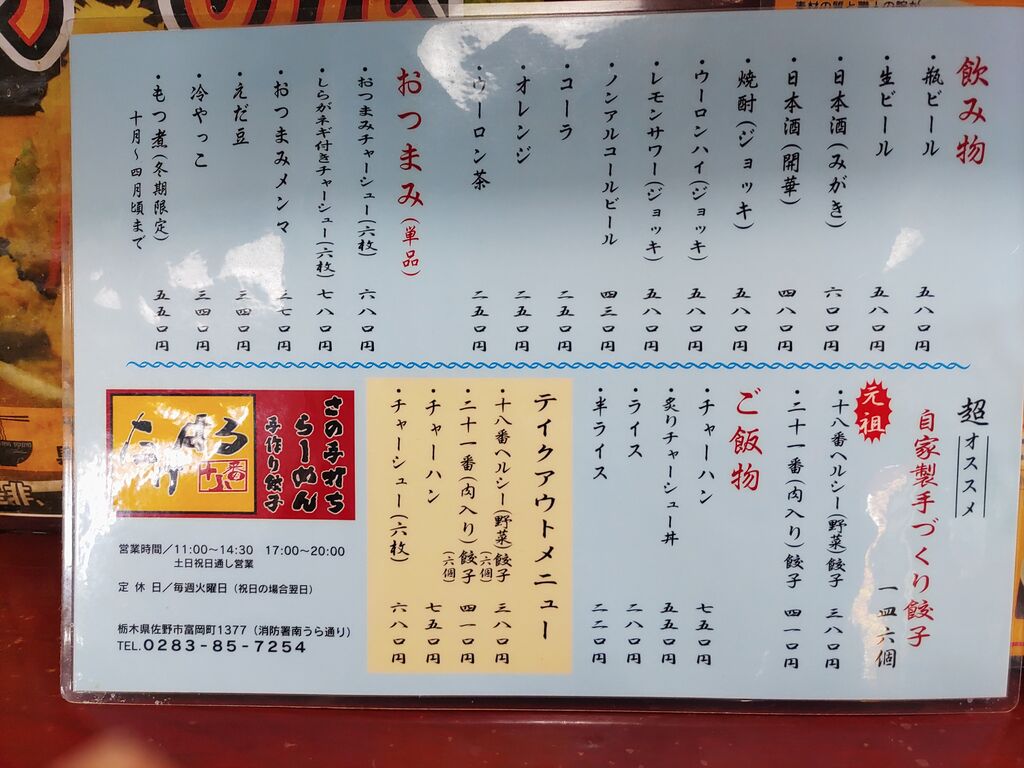 飲み物
・瓶ビール 五八〇円
・生ビール 五八〇円
・日本酒(みがき) 六〇〇円
・日本酒(開華) 四八〇円
・焼酎(ジョッキ) 五八〇円
・ウーロンハイ(ジョッキ) 五八〇円
・レモンサワー(ジョッキ) 五八〇円
・ノンアルコールビール 四三〇円
・コーラ 二五〇円
・オレンジ 二五〇円
・ウーロン茶 二五〇円
おつまみ(単品)
・おつまみチャーシュー(六枚) 六八〇円
・しらがネギ付きチャーシュー(六枚) 七八〇円
・おつまみメンマ 二七〇円
・えだ豆 三四〇円
・冷やっこ 三四〇円
・もつ煮(冬期限定) 五五〇円
十月〜四月頃まで
超オススメ
自家製手づくり餃子
一皿六個
元祖
・十八番ヘルシー(野菜)餃子 三八〇円
・二十一番(肉入り)餃子 四一〇円
ご飯物
・チャーハン 七五〇円
・炙りチャーシュー丼 五五〇円
・ライス 二八〇円
・半ライス 二二〇円
テイクアウトメニュー
・十八番ヘルシー(野菜)餃子(六個) 三八〇円
・二十一番(肉入り)餃子(六個) 四一〇円
・チャーハン 七五〇円
・チャーシュー(六枚) 六八〇円
さの手打ち
らーめん
手作り餃子
十八番
営業時間/11:00〜14:30 17:00〜20:00
土日祝日通し営業
定休日/毎週火曜日(祝日の場合翌日)
栃木県佐野市富岡町1377(消防署南うら通り)
TEL.0283-85-7254